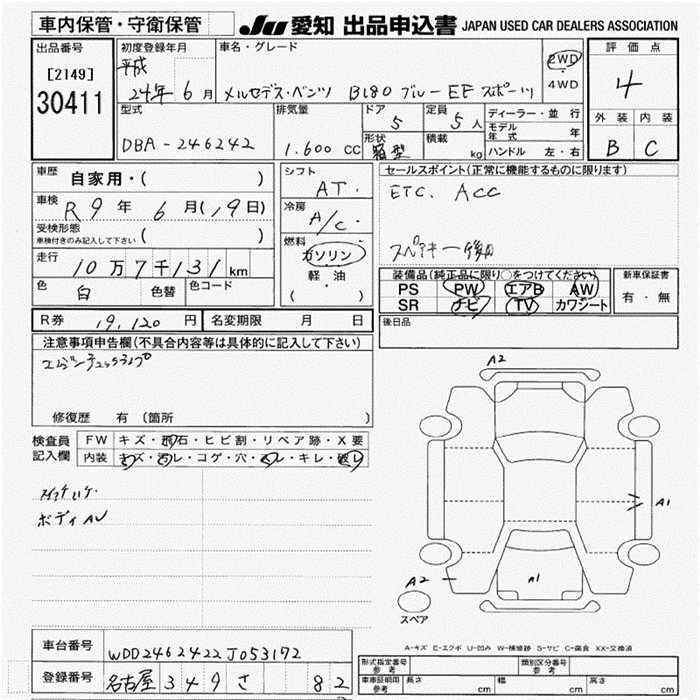 車内保管・守衛保管
JU 愛知 出品申込書 JAPAN USED CAR DEALERS ASSOCIATION
出品番号
[2149]
30411
初度登録年月
平成
24年 6月
車名・グレード
メルセデス・ベンツ B180 ブルーEF スポーツ
2WD
・
4WD
評価点
4
外装 内装
B C
型式
DBA-246242
排気量
1.600 CC
ドア
5
定員
5人
形状
箱型
積載
kg
ディーラー・並行
モデル年式 年
ハンドル 左・右
車歴
自家用・( )
車検
R9年 6月(19日)
受検形態
車検付きのみ記入して下さい ( )
走行
10万7千131km
色
白
色替
色コード
シフト
AT.
冷房
A/C.
燃料
ガソリン
軽油
( ・ )
セールスポイント(正常に機能するものに限ります)
ETC. ACC
装備品(純正品に限り○をつけてください)
PS PW エアB AW
SR ナビ TV カワシート
新車保証書
有・無
R券 19,120円
名変期限 月 日
後日品
注意事項申告欄(不具合内容等は具体的に記入して下さい)
修復歴 有 (箇所 )
検査員
記入欄
FW キズ・飛石・ヒビ割・リペア跡・X要
内装 キズ・汚レ・コゲ・穴・スレ・キレ・破レ
ボディAU
A2
A1
A2
A1
スペア
A-キズ E-エクボ U-凹み W-補修跡 S-サビ C-腐食 XX-交換済
車台番号
WDD2462422J053172
登録番号
名古屋 349 さ 82
形式指定番号
参考
類別区分番号
参考
車車証明用
参考
長さ cm
幅 cm
高さ cm